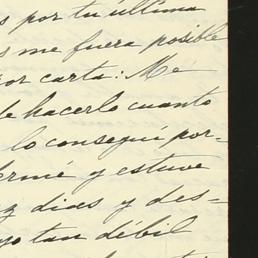 s por tu última
s me fuera posible
por carta: Me
de hacerlo cuanto
lo conseguí por-
fermé y estuve
z dias y des-
yo tan débil